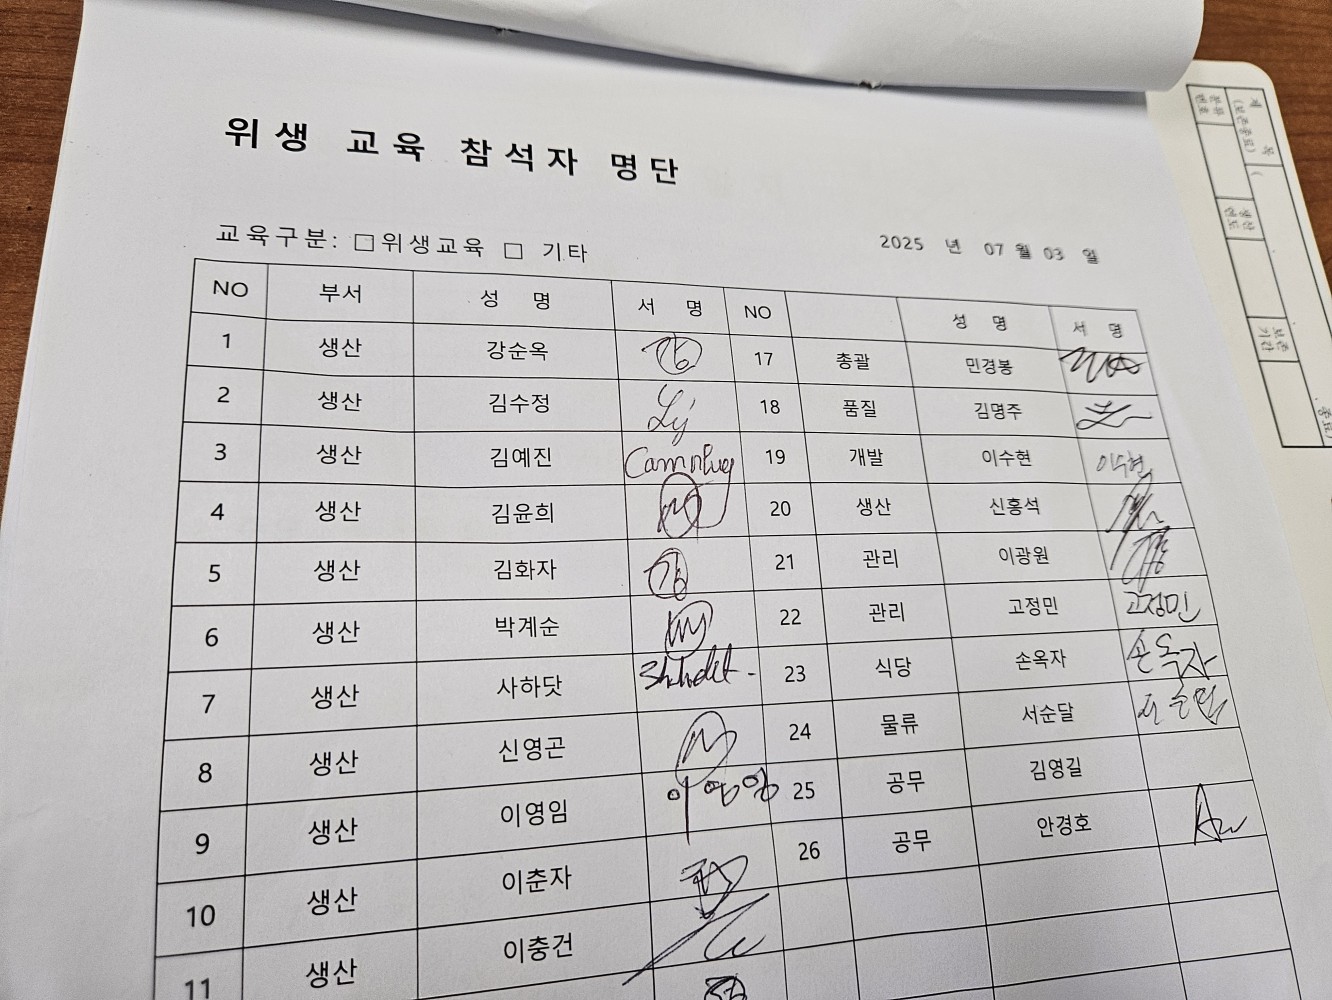 위생 교육 참석자 명단
교육구분: □위생교육 □ 기타
2025 년 07 월 03 일
NO 부서 성 명 서 명 NO 성 명 서 명
1 생산 강순옥 17 총괄 민경봉
2 생산 김수정 18 품질 김명주
3 생산 김예진 19 개발 이수현 이수현
4 생산 김윤희 20 생산 신홍석
5 생산 김화자 21 관리 이광원
6 생산 박계순 22 관리 고정민 고정민
7 생산 사하닷 23 식당 손옥자 손옥자
8 생산 신영곤 24 물류 서순달
9 생산 이영임 이영임 25 공무 김영길
10 생산 이춘자 26 공무 안경호
11 생산 이충건
제 목
(보존종료)
분류
번호
생산
년도
보존
기간